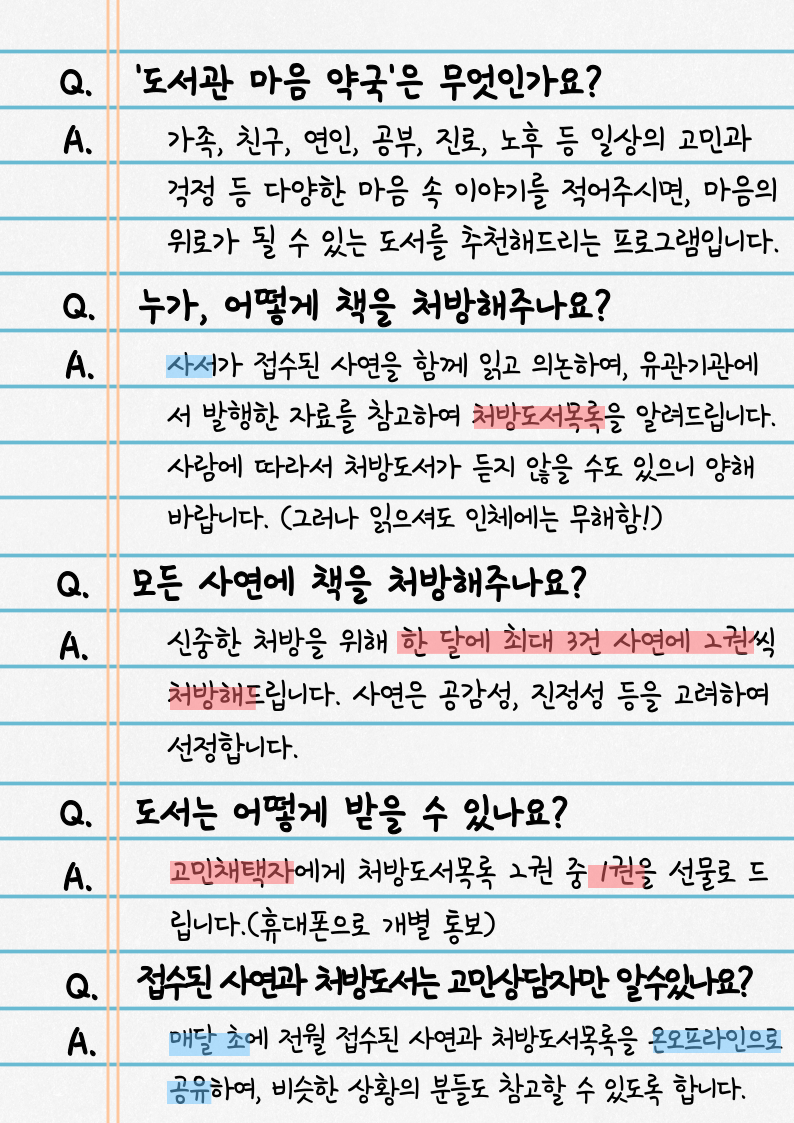 Q. '도서관 마음 약국'은 무엇인가요?
A. 가족, 친구, 연인, 공부, 진로, 노후 등 일상의 고민과
걱정 등 다양한 마음 속 이야기를 적어주시면, 마음의
위로가 될 수 있는 도서를 추천해드리는 프로그램입니다.
Q. 누가, 어떻게 책을 처방해주나요?
A. 사서가 접수된 사연을 함께 읽고 의논하여, 유관기관에
서 발행한 자료를 참고하여 처방도서목록을 알려드립니다.
사람에 따라서 처방도서가 듣지 않을 수도 있으니 양해
바랍니다. (그러나 읽으셔도 인체에는 무해함!)
Q. 모든 사연에 책을 처방해주나요?
A. 신중한 처방을 위해 한 달에 최대 3건 사연에 2권씩
처방해드립니다. 사연은 공감성, 진정성 등을 고려하여
선정합니다.
Q. 도서는 어떻게 받을 수 있나요?
A. 고민채택자에게 처방도서목록 2권 중 1권을 선물로 드
립니다.(휴대폰으로 개별 통보)
Q. 접수된 사연과 처방도서는 고민상담자만 알수있나요?
A. 매달 초에 전월 접수된 사연과 처방도서목록을 온오프라인으로
공유하여, 비슷한 상황의 분들도 참고할 수 있도록 합니다.